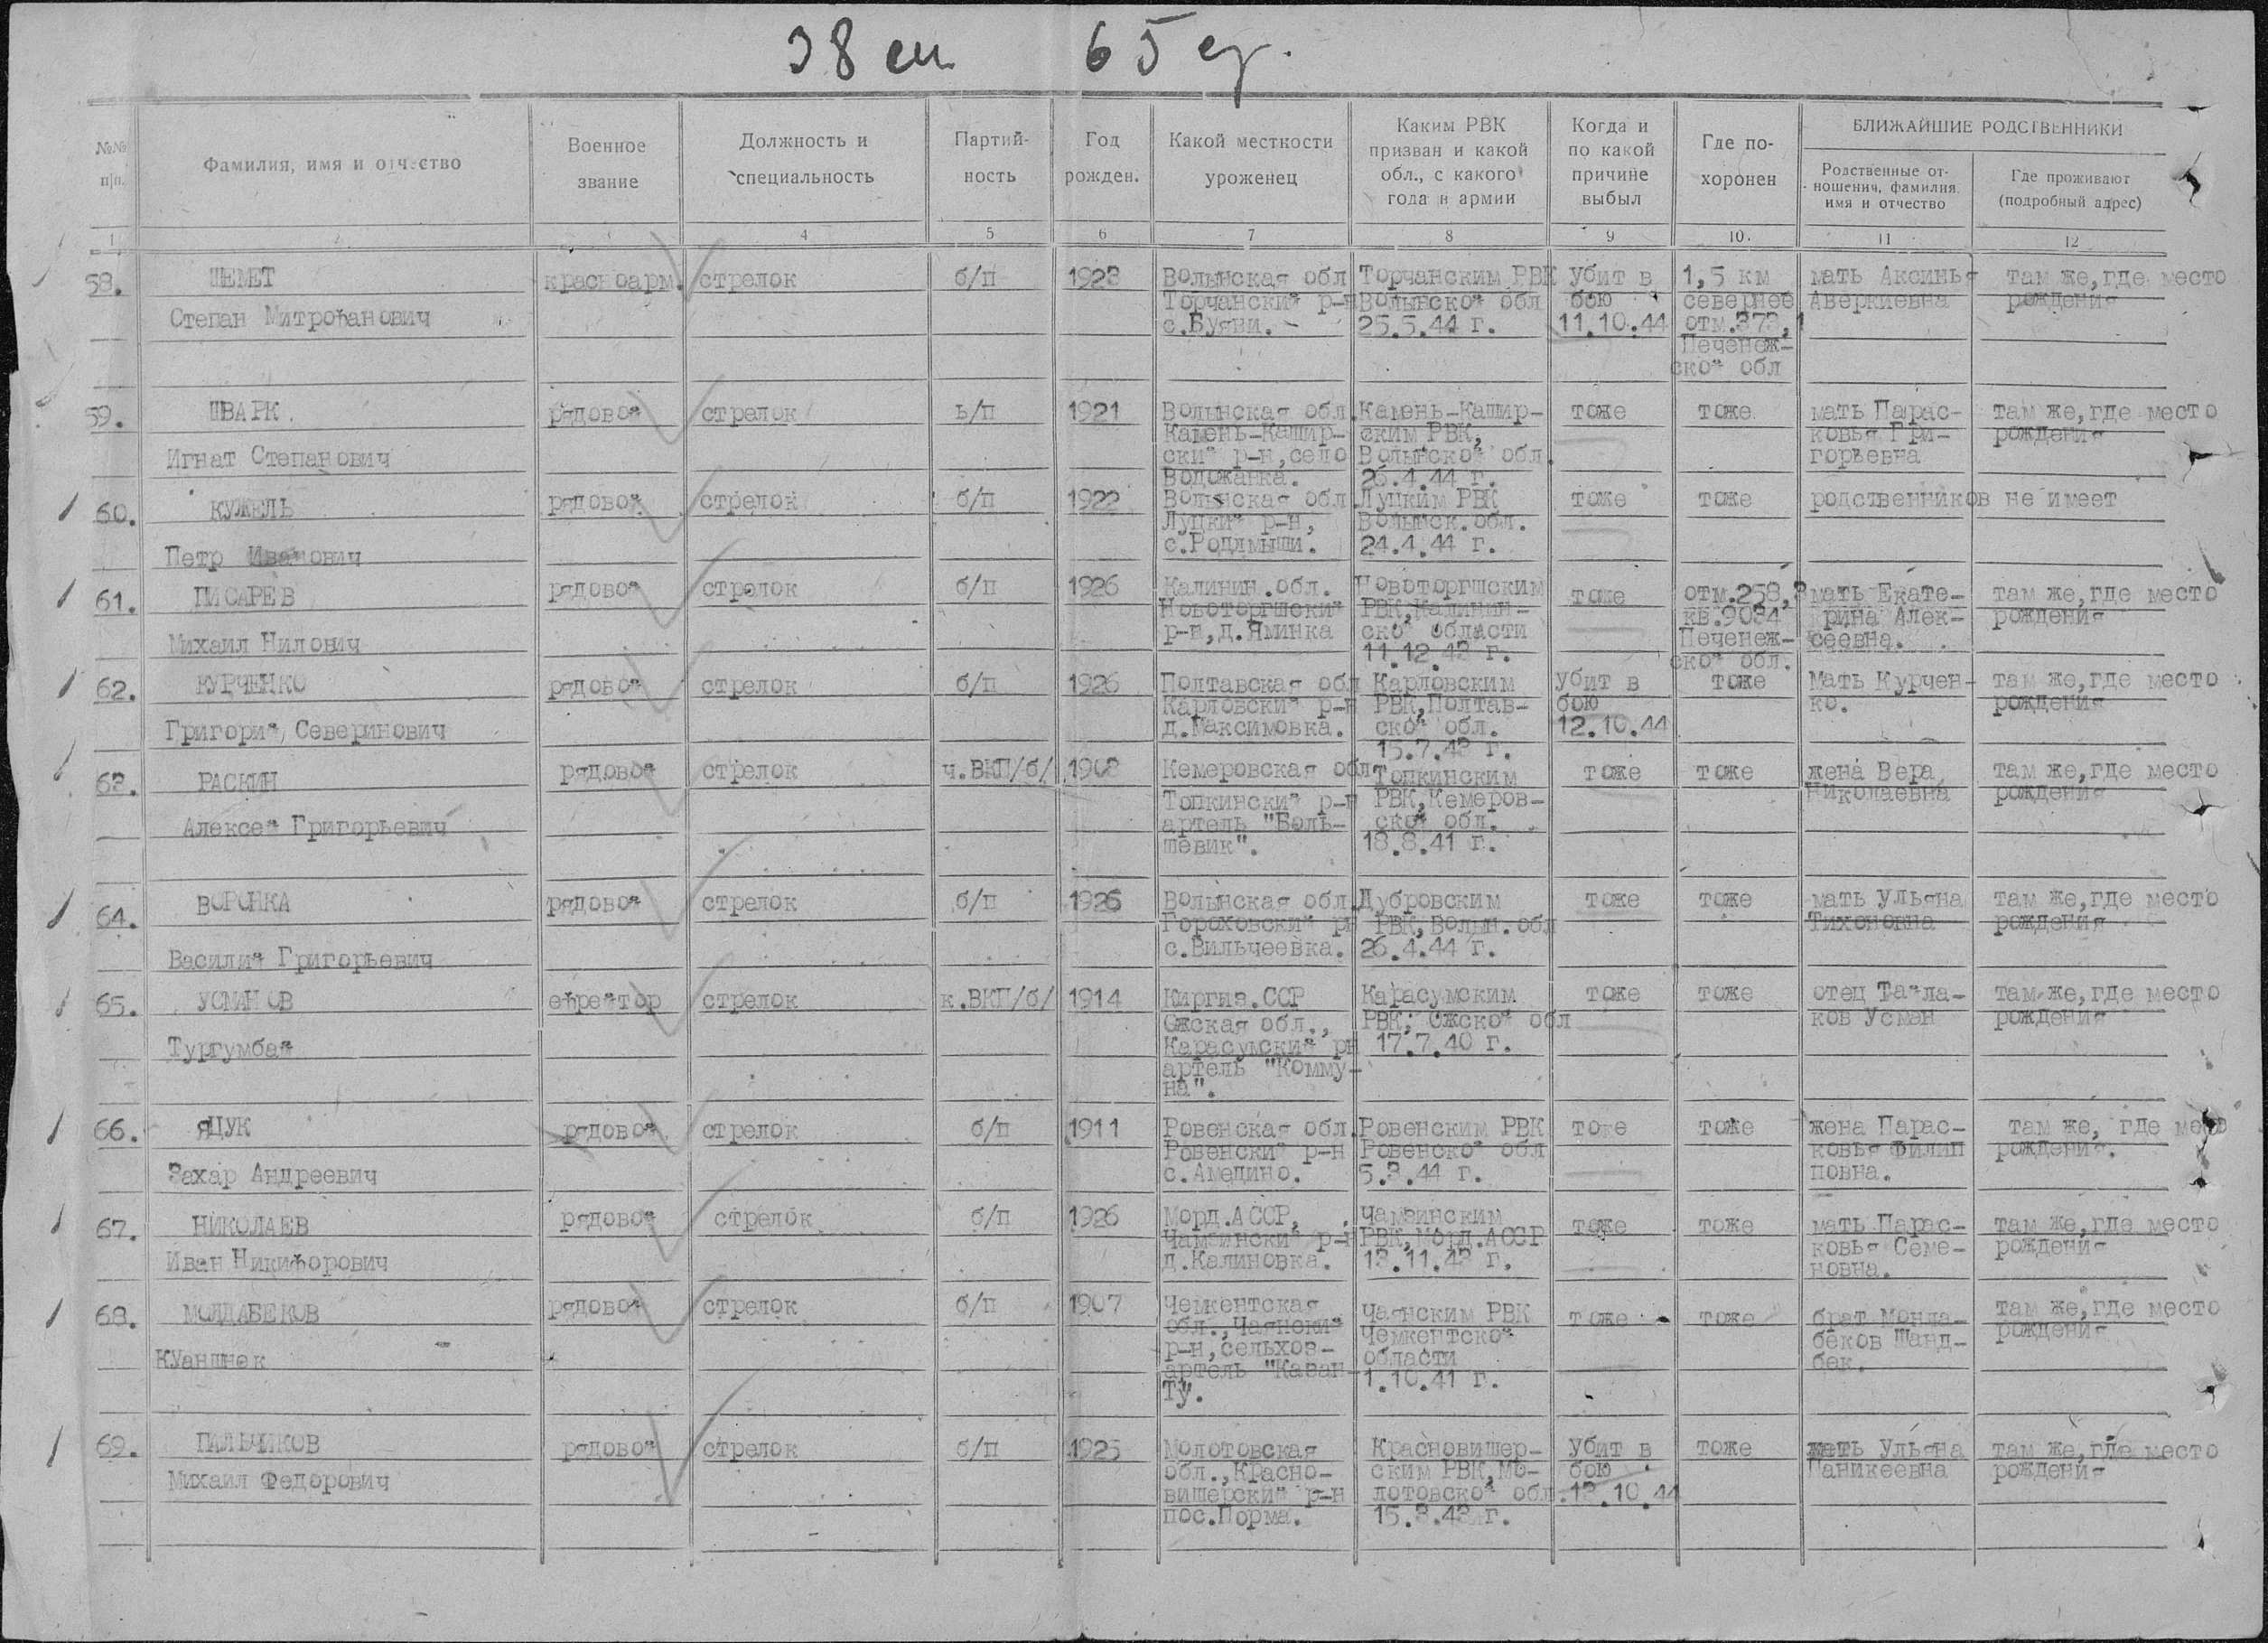 38 сп 65 сд.
№№ п/п.
Фамилия, имя и отчество
Военное звание
Должность и специальность
Партий-ность
Год рожден.
Какой местности уроженец
Каким РВК призван и какой обл., с какого года в армии
Когда и по какой причине выбыл
Где по-хоронен
БЛИЖАЙШИЕ РОДСТВЕННИКИ
Родственные от-ношения, фамилия, имя и отчество
Где проживают (подробный адрес)
1 2 3 4 5 6 7 8 9 10. 11 12
58. ШЕМЕТ красноарм. стрелок б/п 1923 Волынская обл Торчанским РВК убит в 1,5 км мать Аксинья там же, где место
Торчаский р-н Волынской обл бою севернее Аверкиевна рождения
Степан Митрофанович с.Буяни. 25.5.44 г. 11.10.44 отм.373,1
Печенеж-
ской обл
59. ШВАРК. рядовой стрелок б/п 1921 Волынская обл. Камень-Кашир- тоже тоже мать Парас- там же, где место
Камень-Кашир- ским РВК, ковья Гри- рождения
Игнат Степанович ский р-н, село Волынской обл. горьевна
Водожанка. 26.4.44 г.
60. КУЖЕЛЬ рядовой стрелок б/п 1922 Волынская обл Луцким РВК тоже тоже родственников не имеет
Луцкий р-н, Волынск.обл.
Петр Иванович с.Родлмыши. 24.4.44 г.
61. ПИСАРЕВ рядовой стрелок б/п 1926 Калинин.обл. Новоторгшским тоже отм.258,3 мать Екате- там же, где место
Новоторгшский РВК, Калинин- кв.9084 рина Алек- рождения
Михаил Нилович р-н, д.Яминка ской области Печенеж- сеевна.
11.12.43 г. ской обл.
62. КУРЧЕНКО рядовой стрелок б/п 1926 Полтавская обл Карловским убит в тоже Мать Курчен- там же, где место
Карловский р-н РВК, Полтав- бою ко. рождения
Григорий Северинович д.Максимовка. ской обл. 12.10.44
15.7.43 г.
63. РАСКИН рядовой стрелок ч.ВКП/б/ 1908 Кемеровская обл Топкинским тоже тоже жена Вера там же, где место
Топкинский р-н РВК, Кемеров- Николаевна рождения
Алексей Григорьевич артель "Боль- ской обл.
шевик". 18.8.41 г.
64. ВОРОНКА рядовой стрелок б/п 1926 Волынская обл. Дубровским тоже тоже мать Ульяна там же, где место
Гороховский рн РВК, Волын.обл Тихоновна рождения
Василий Григорьевич с.Вильчеевка. 26.4.44 г.
65. УСМАНОВ ефрейтор стрелок к.ВКП/б/ 1914 Киргиз.ССР Карасумским тоже тоже отец Тайла- там же, где место
Ожская обл., РВК, Ожской обл ков Усман рождения
Тургумбай Карасумский рн 17.7.40 г.
артель "Комму-
на".
66. ЯЦУК рядовой стрелок б/п 1911 Ровенская обл. Ровенским РВК тоже тоже жена Парас- там же, где мес
Ровенский р-н Ровенской обл ковья Филип рождения.
Захар Андреевич с.Амедино. 5.3.44 г. повна.
67. НИКОЛАЕВ рядовой стрелок б/п 1926 Морд.АССР, Чамзинским тоже тоже мать Парас- там же, где место
Чамзинский р-н РВК, Морд.АССР ковья Семе- рождения
Иван Никифорович д.Калиновка. 13.11.43 г. новна.
68. МОЛДАБЕКОВ рядовой стрелок б/п 1907 Чемкентская Чаянским РВК тоже тоже брат Монда- там же, где место
обл., Чаянский Чемкентской беков Шанд- рождения
Куаншнек р-н, сельхоз- области бек.
артель "Казан 1.10.41 г.
Ту.
69. ПАЛЬЧИКОВ рядовой стрелок б/п 1925 Молотовская Красновишер- убит в тоже мать Ульяна там же, где место
Михаил Федорович обл., Красно- ским РВК, Мо- бою Паникеевна рождения
вишерский р-н лотовской обл. 13.10.44
пос.Порма. 15.3.43 г.